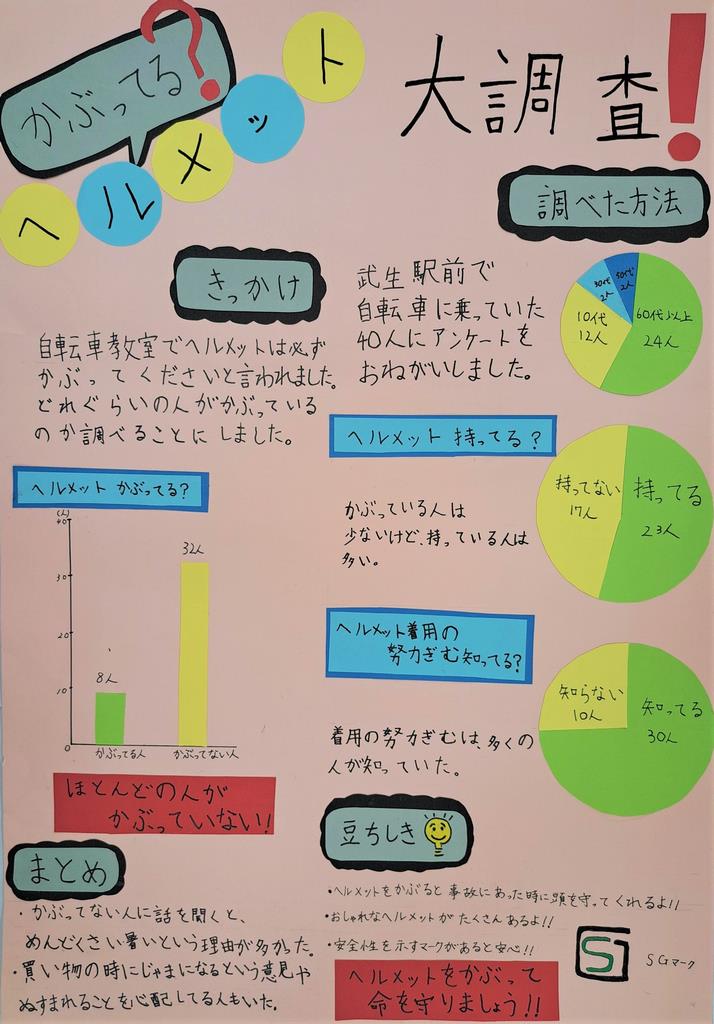 かぶってる?
ヘルメット
大調査!
きっかけ
自転車教室でヘルメットは必ず
かぶってくださいと言われました。
どれぐらいの人がかぶっている
のか調べることにしました。
調べた方法
武生駅前で
自転車に乗っていた
40人にアンケートを
おねがいしました。
60代以上
24人
10代
12人
30代
2人
50代
2人
ヘルメットかぶってる?
(人)
40
30
20
10
0
8人
32人
かぶってる人
かぶってない人
ほとんどの人が
かぶっていない!
ヘルメット持ってる?
かぶっている人は
少ないけど、持っている人は
多い。
持ってない
17人
持ってる
23人
ヘルメット着用の
努力ぎむ知ってる?
着用の努力ぎむは、多くの
人が知っていた。
知らない
10人
知ってる
30人
まとめ
・かぶってない人に話を聞くと、
めんどくさい暑いという理由が多かった。
・買い物の時にじゃまになるという意見や
ぬすまれることを心配してる人もいた。
豆ちしき
・ヘルメットをかぶると事故にあった時に頭を守ってくれるよ!!
・おしゃれなヘルメットがたくさんあるよ!!
・安全性を示すマークがあると安心!!
SG
SGマーク
ヘルメットをかぶって
命を守りましょう!!